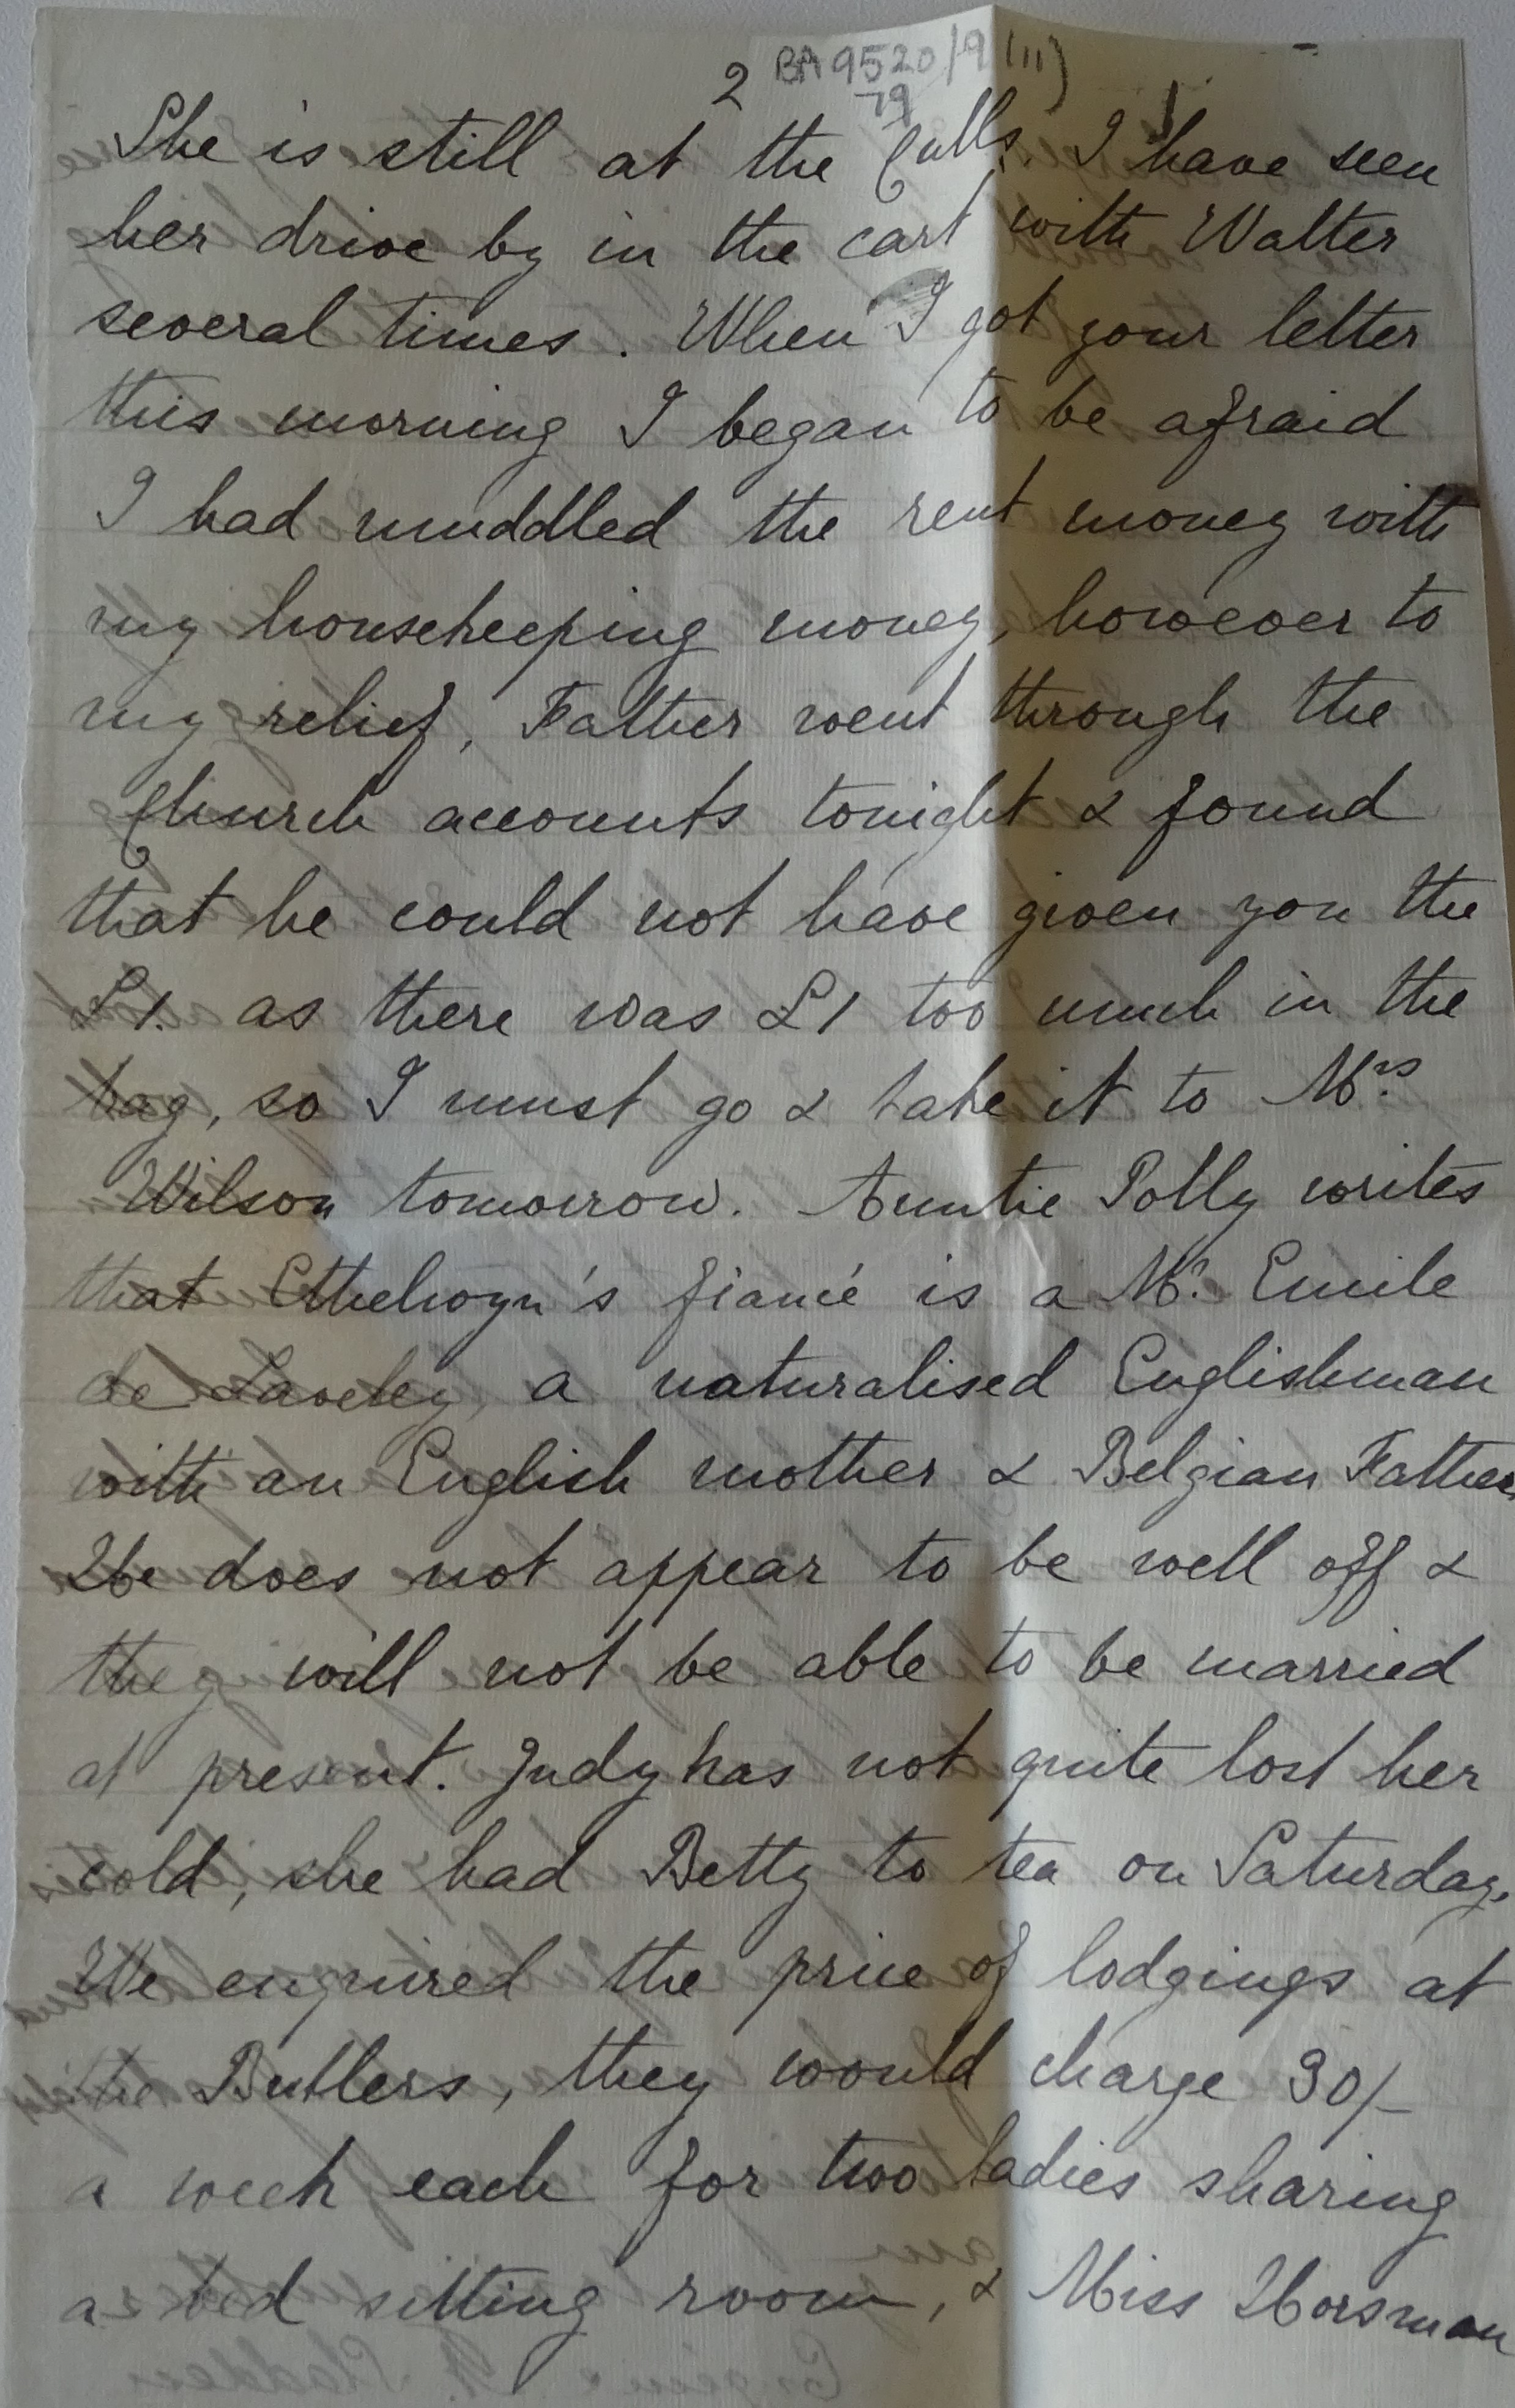 2 BA 9520/9 (11)
79
She is still at the Culls. I have seen
her drive by in the cart with Walter
several times. When I got your letter
this morning I began to be afraid
I had muddled the rent money with
my housekeeping money, however to
my relief, Father went through the
Church accounts tonight & found
that he could not have given you the
£1. as there was £1 too much in the
bag, so I must go & take it to Mrs.
Wilson tomorrow. Auntie Polly writes
that Ethelwyn's fiancé is a Mr. Emile
de Laveley, a naturalised Englishman
with an English mother & Belgian Father.
He does not appear to be well off &
they will not be able to be married
at present. Judy has not quite lost her
cold, she had Betty to tea on Saturday.
We enquired the price of lodgings at
the Butlers, they would charge 30/-
a week each for two ladies sharing
a bed sitting room, & Miss Horsman